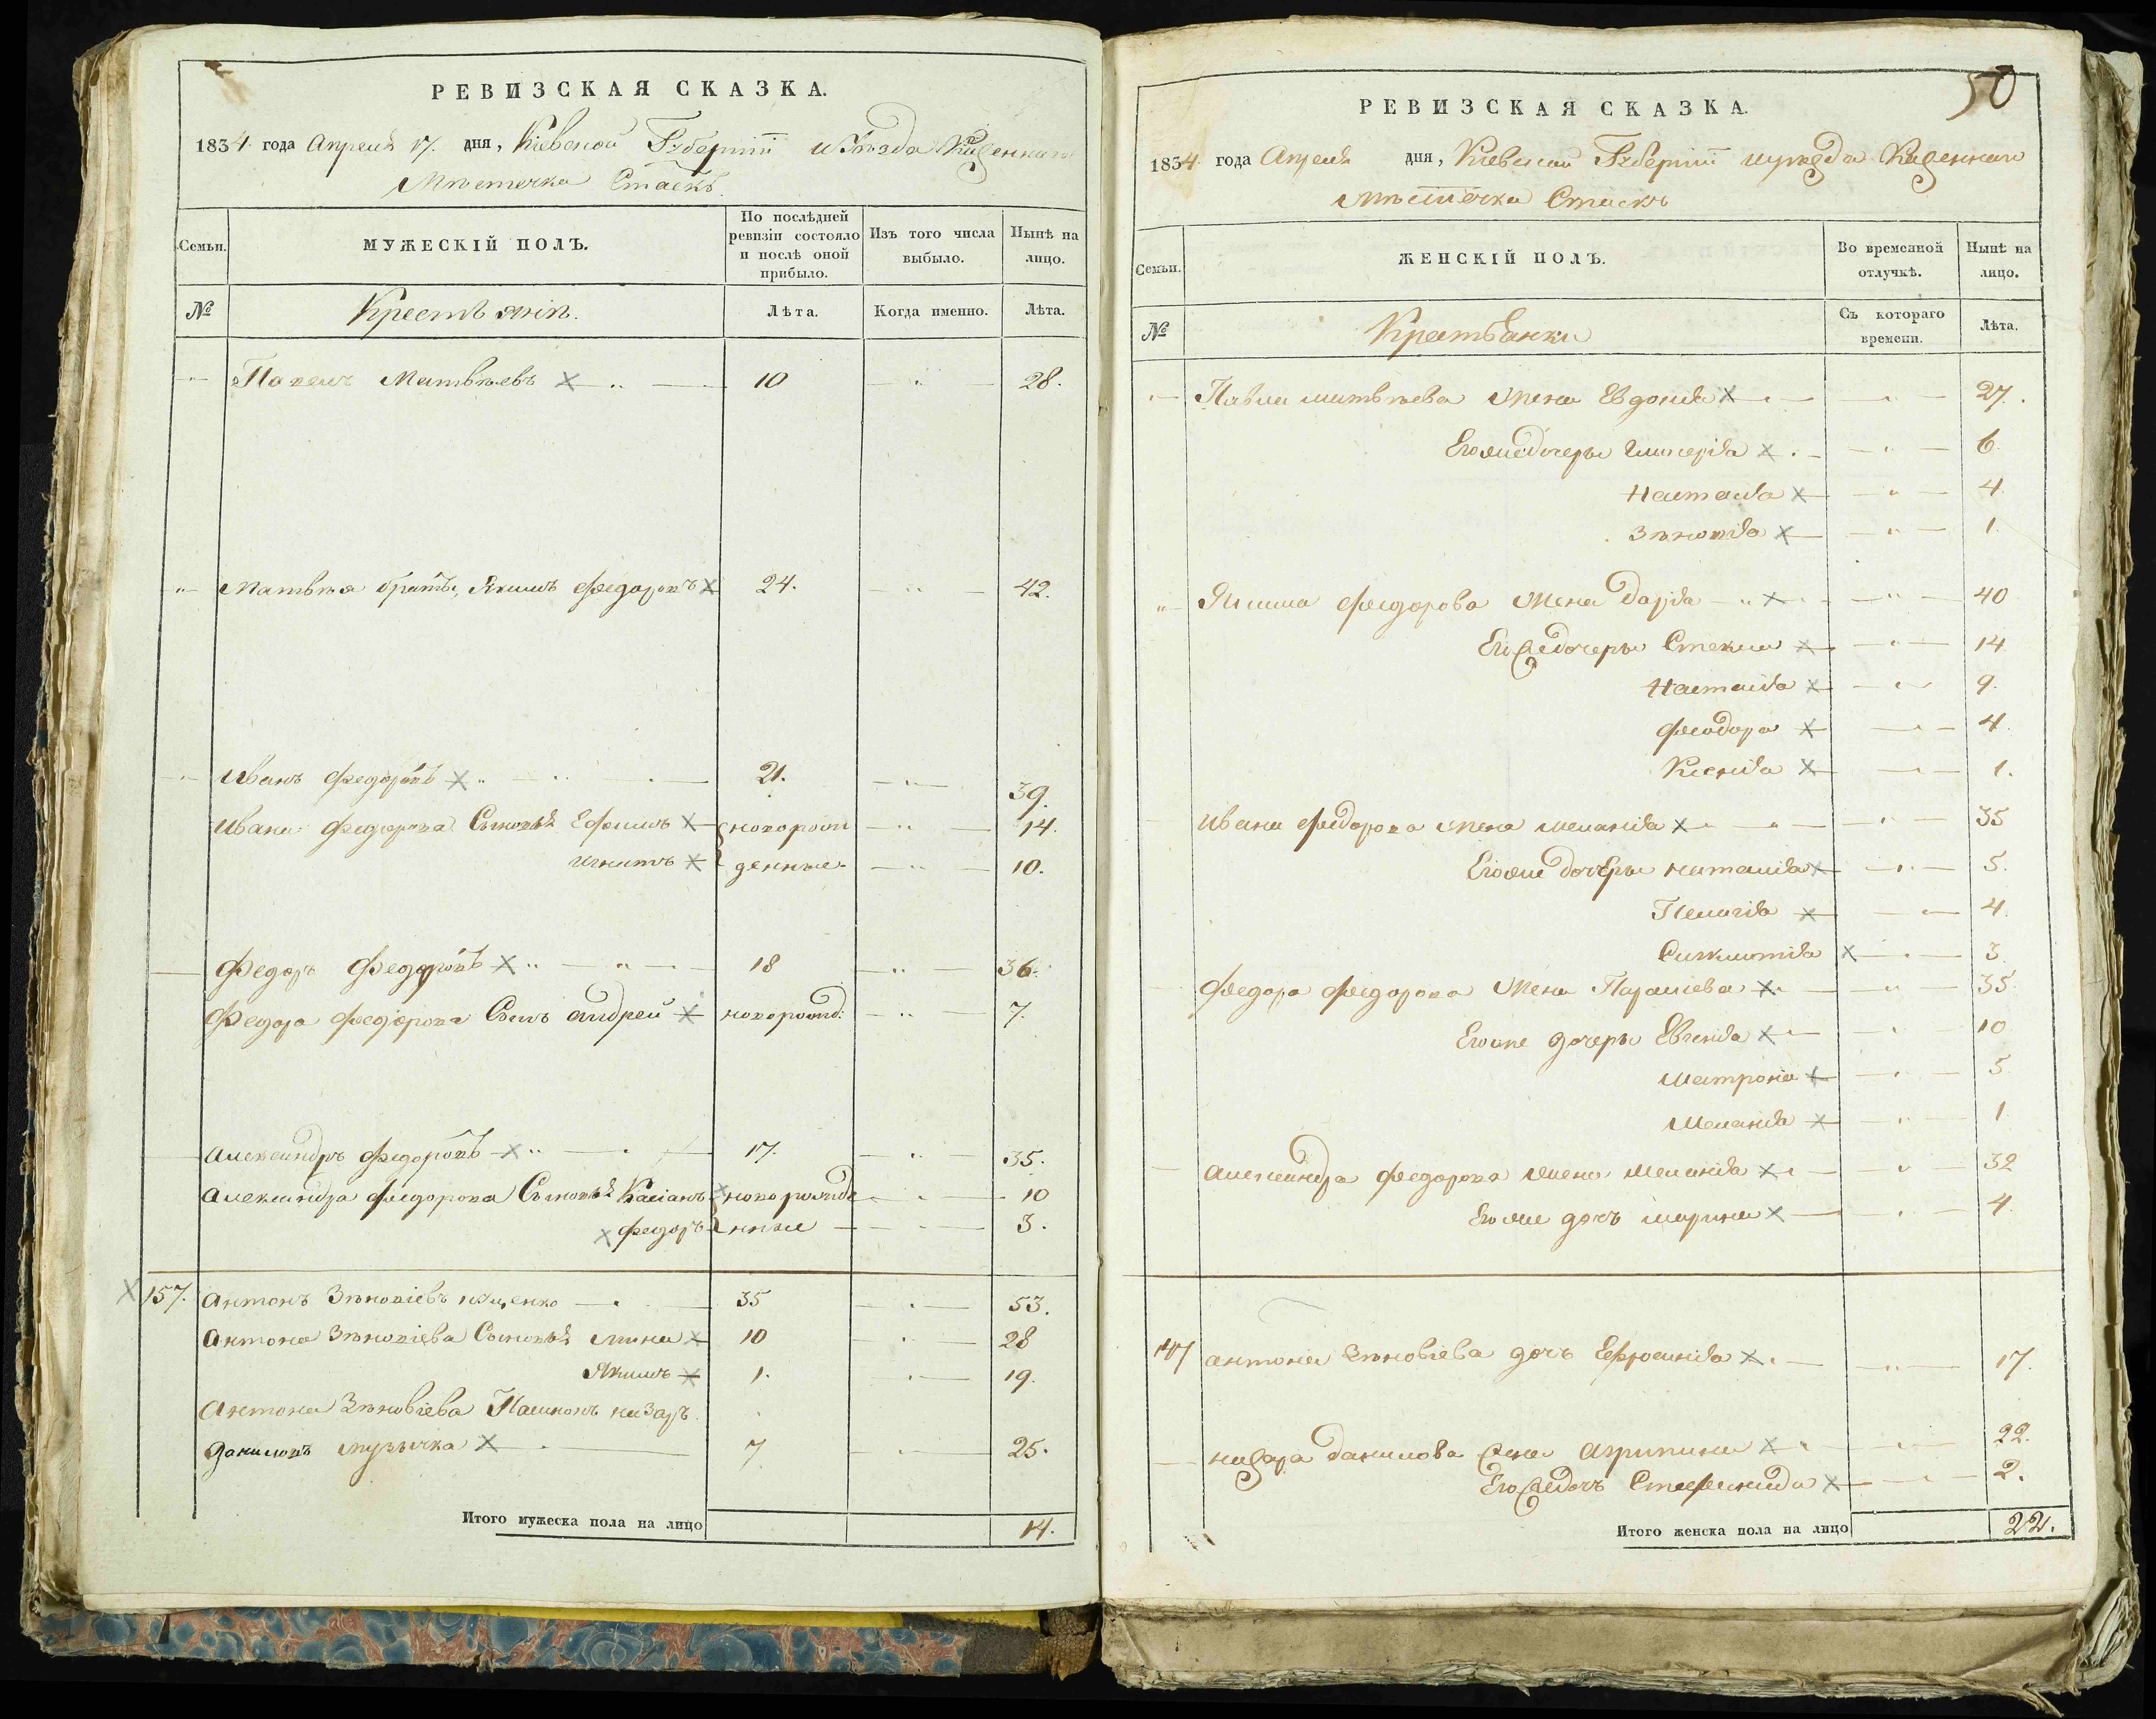 РЕВИЗСКАЯ СКАЗКА.
1834 года Апреля 17. дня, Кіевской Губерніи и уѣзда Казеннаго
Мѣстечка Стаекъ
Семьи. МУЖЕСКІЙ ПОЛЪ. По послѣдней ревизіи состояло и послѣ оной прибыло. Изъ того числа выбыло. Нынѣ на лицо.
№ Крестьяне. Лѣта. Когда именно. Лѣта.
Павелъ Матвѣевъ 10 28.
Матвѣя братъ, Якимъ Федоровъ 24. 42.
Иванъ Федоровъ 21. 39.
Ивана Федорова Сыновья Ефимъ новорож 14.
Игнатъ денные 10.
Федоръ Федоровъ 18 36.
Федора Федорова Сынъ Андрей новорожд: 7.
Александръ Федоровъ 17. 35.
Александра Федорова Сыновья Касіанъ новорожде 10
Федоръ нные 3.
157. Антонъ Зѣновіевъ 35 53.
Антона Зѣновіева Сыновья Мина 10 28
Якимъ 1. 19.
Антона Зѣновіева Пасинокъ Назаръ
Даниловъ Музычка 7 25.
Итого мужеска пола на лицо 14.
50
РЕВИЗСКАЯ СКАЗКА.
1834 года Апреля дня, Кіевской Губерніи и уѣзда Казеннаго
Мѣстечка Стаекъ
Семьи. ЖЕНСКІЙ ПОЛЪ. Во временной отлучкѣ. Нынѣ на лицо.
№ Крестьянки Съ котораго времени. Лѣта.
Павла Матвѣева Жена Евдокія 27.
Егоже дочеры Гликерія 6.
Настасія 4.
Зѣновія 1.
Якима Федорова Жена Дарія 40
Егоже дочеры Стекла 14
Настасія 9.
Феодора 4.
Ксенія 1.
Ивана Федорова Жена Меланія 35
Егоже дочеры Наталія 5.
Пелагія 4.
3.
Федора Федорова Жена Параскева 35
Егоже дочеры Евгенія 10
Матрона 5
Меланія 1
Александра Федорова Жена Меланія 32
Егоже дочъ Марина 4
Антона Зѣновіева дочъ Ефросинія 17.
Назара Данилова Жена Агрипина 22.
Егоже дочъ Стефанида 2.
Итого женска пола на лицо 22.